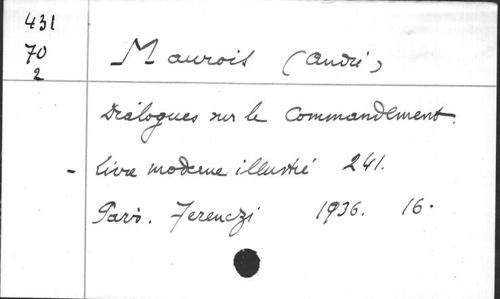 431
70
2
Maurois (André)
Dialogues sur le Commandement.
- Livre moderne illustré 241.
Paris. Ferenczi 1936. 16.